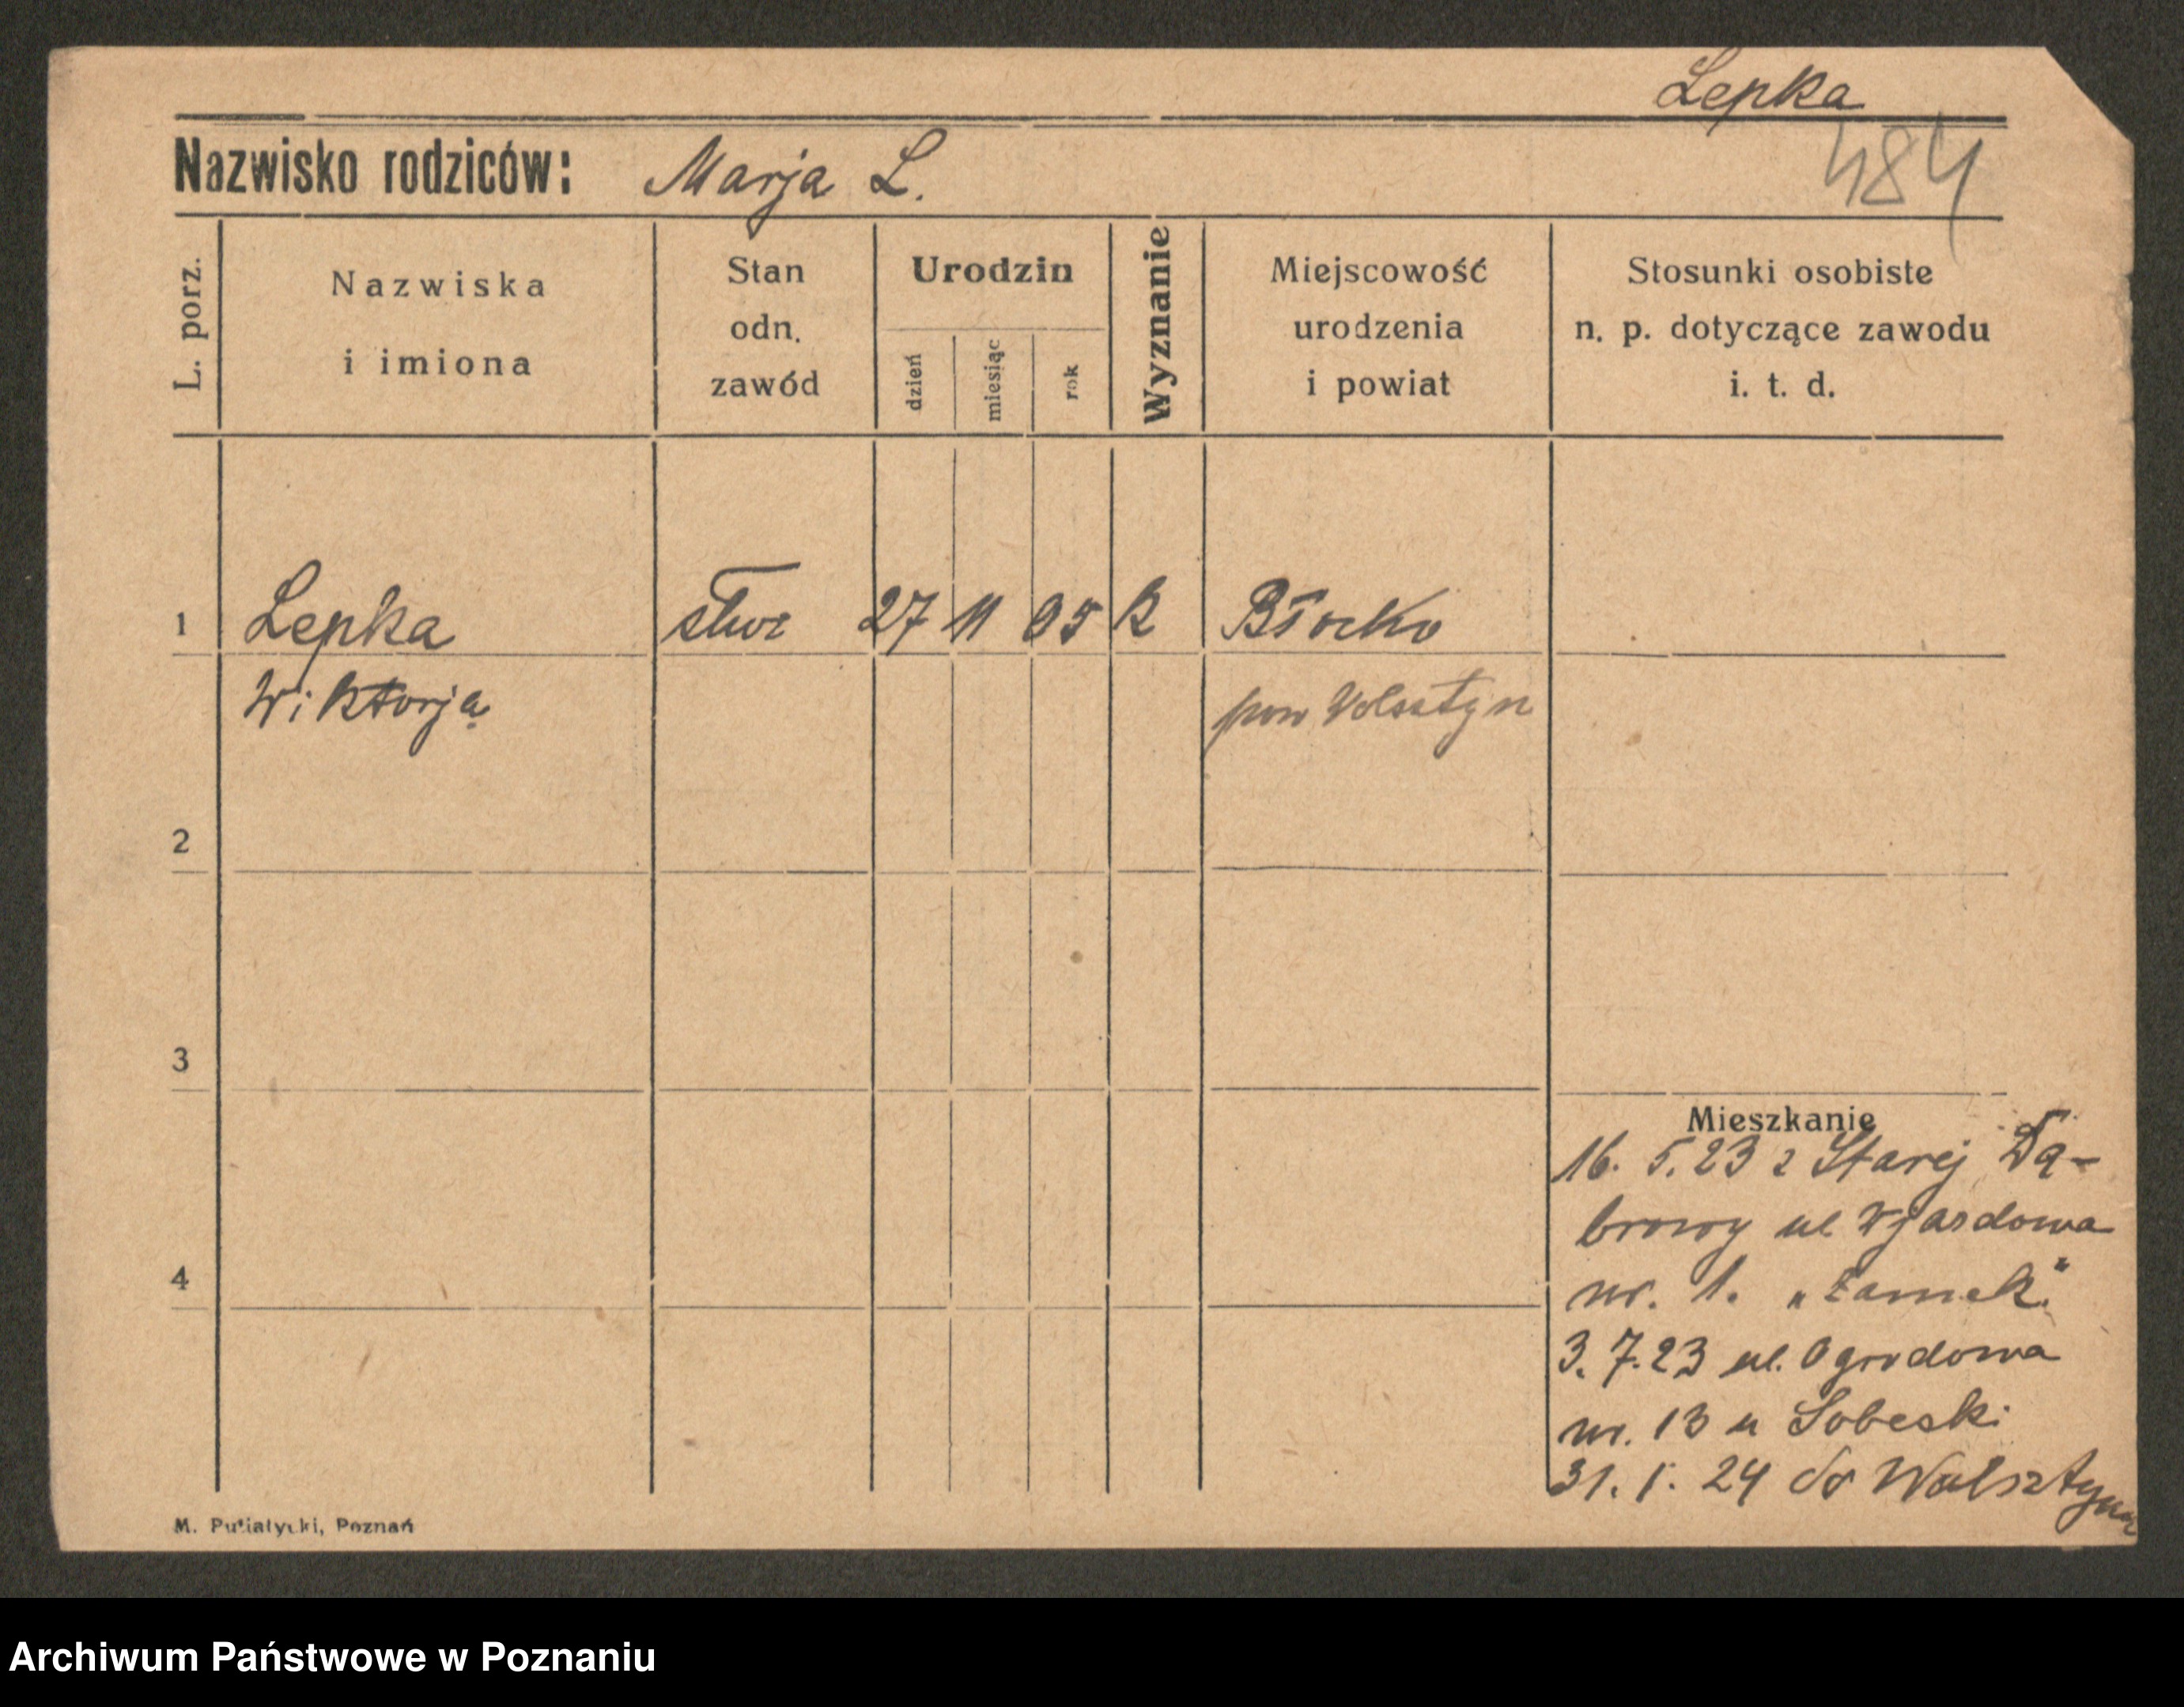 Lepka
484
Nazwisko rodziców: Marja L.
L. porz.
Nazwiska
i imiona
Stan
odn.
zawód
Urodzin
dzień
miesiąc
rok
Wyznanie
Miejscowość
urodzenia
i powiat
Stosunki osobiste
n. p. dotyczące zawodu
i. t. d.
1 Lepka 27 11 05 K Błocko
Wiktorja pow Wolsztyn
2
3
4
Mieszkanie
16. 5. 23 z Starej Dą-
browy ul Wjazdowa
nr. 1. „Zamek"
3. 7. 23 ul. Ogrodowa
nr. 13 u Sobeski
31. 1. 24 do Wolsztyna
M. Putiatycki, Poznań
Archiwum Państwowe w Poznaniu